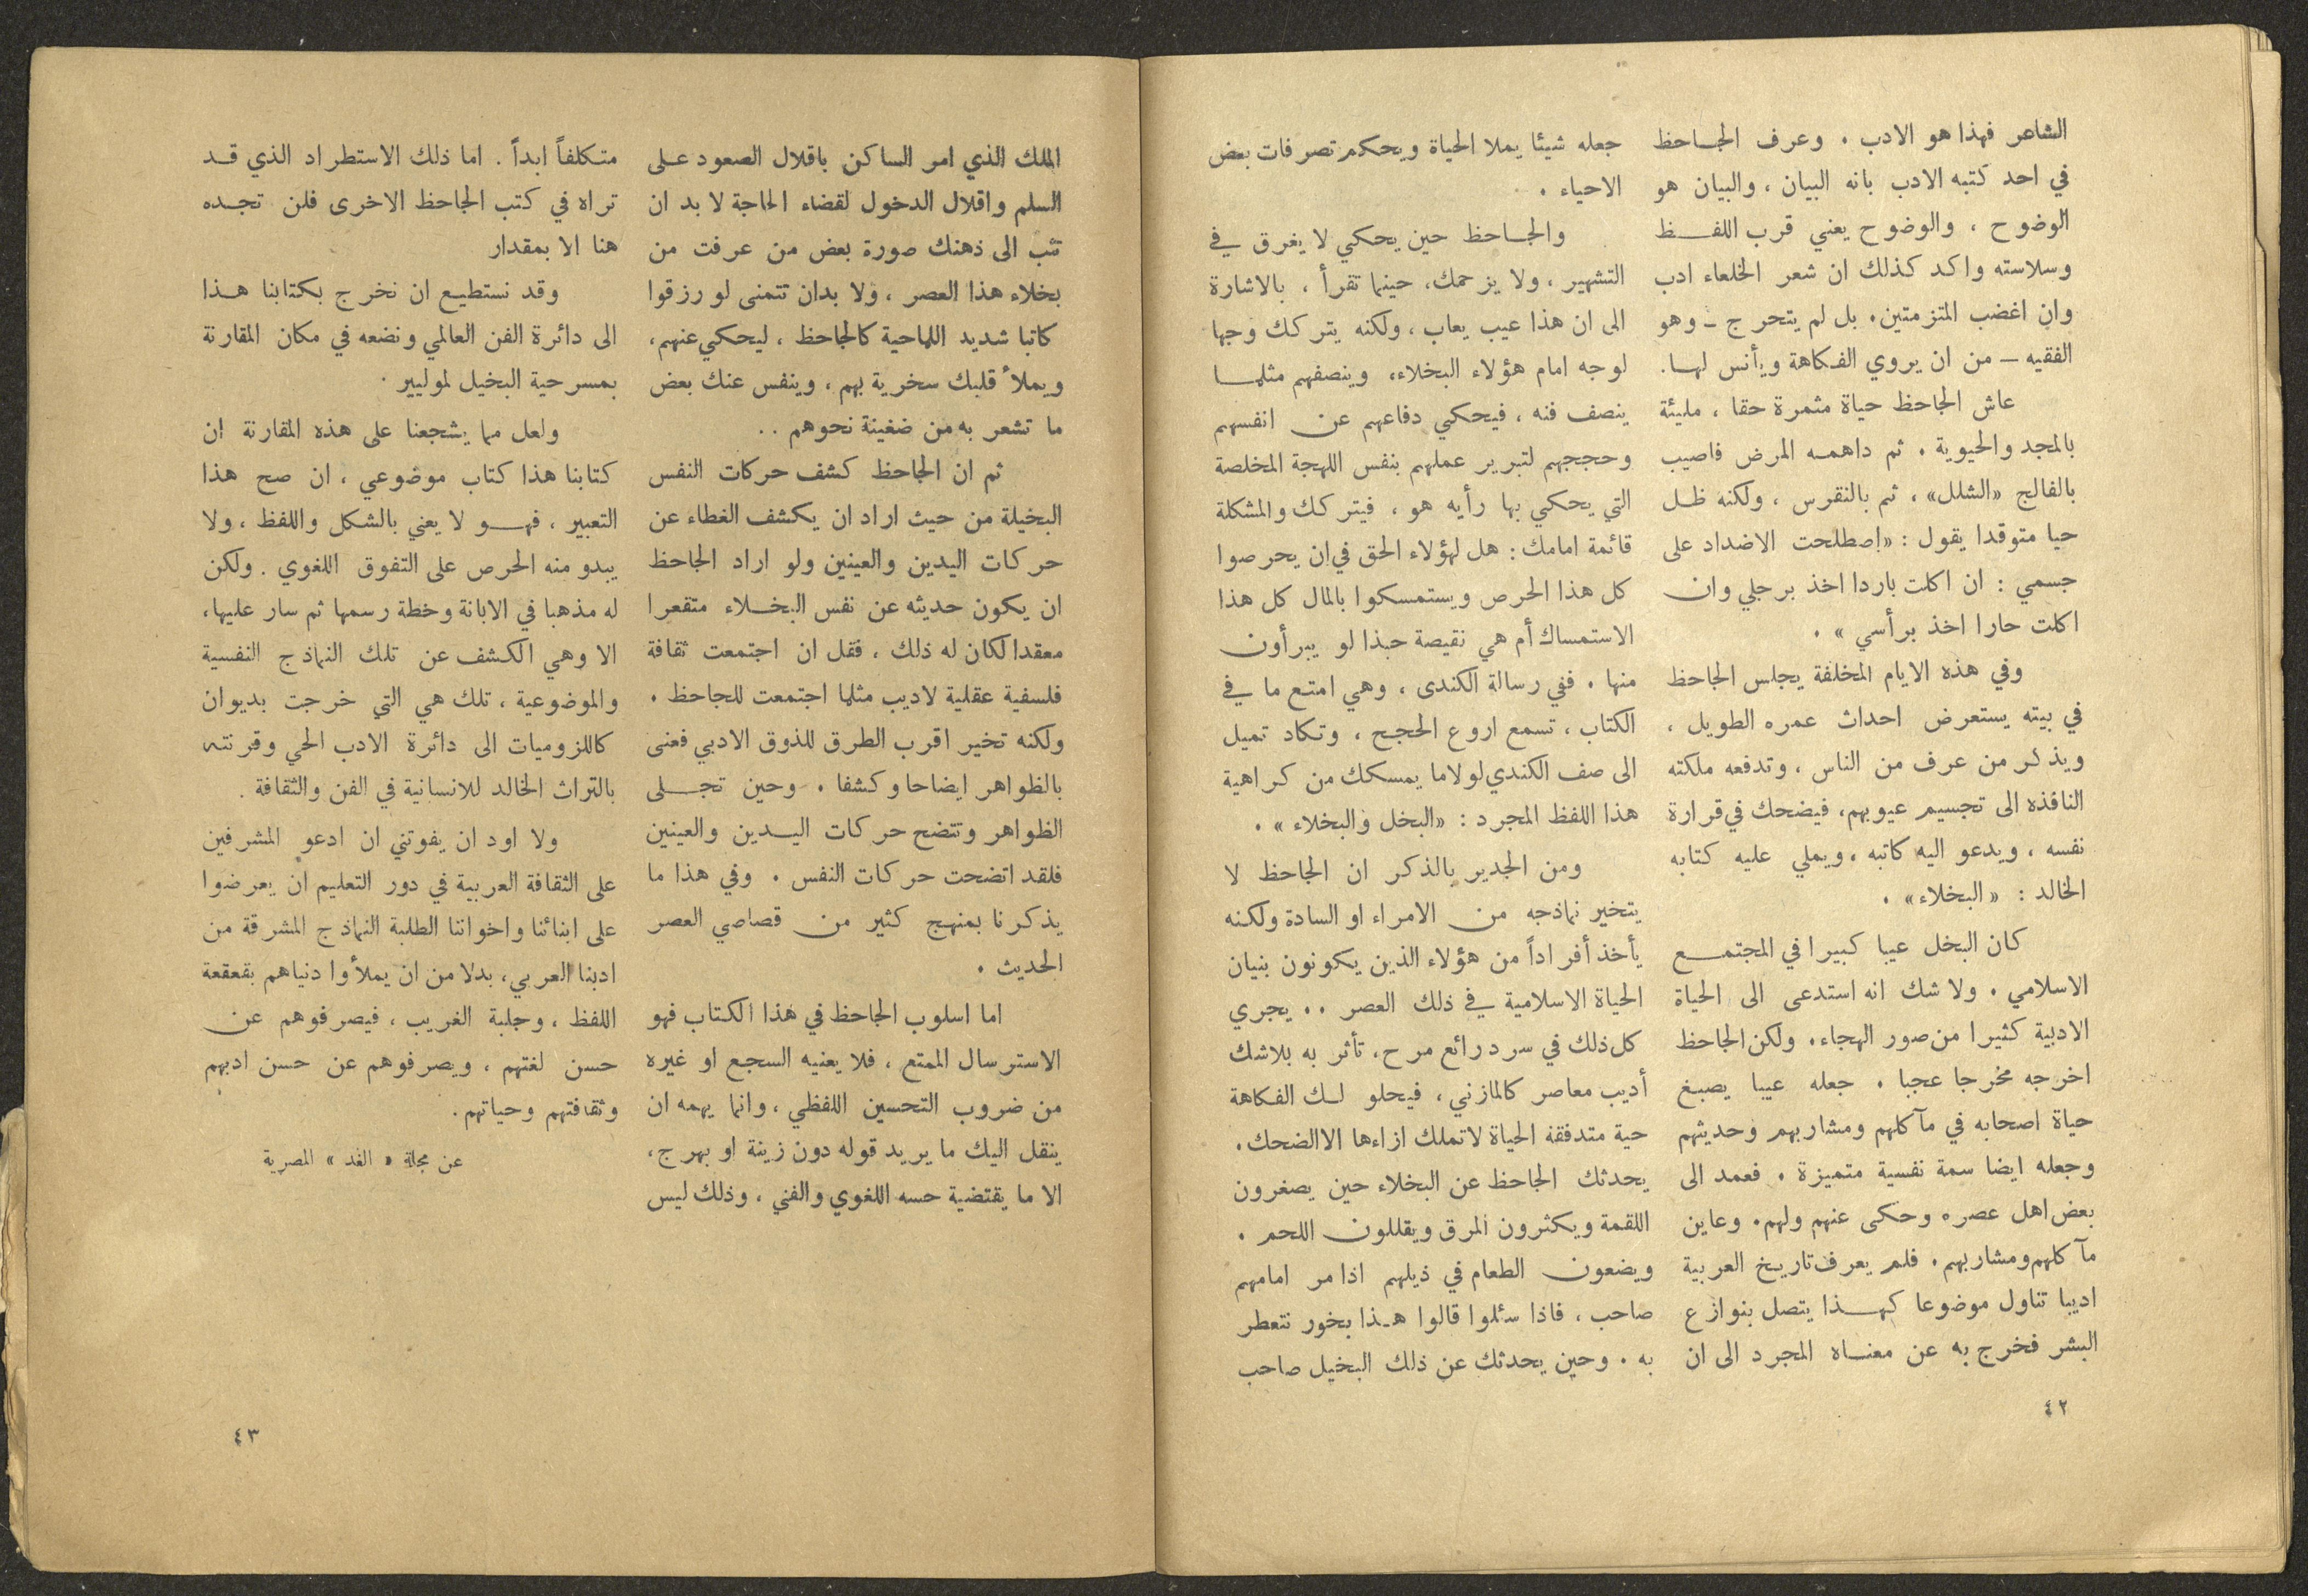 الشاعر فهذا هو الادب . وعرف الجاحظ
في احد كتبه الادب بانه البيان ، والبيان هو
الوضوح ، والوضوح يعني قرب اللفظ
وسلاسته واكد كذلك ان شعر الخلعاء ادب
وان اغضب المتزمتين . بل لم يتحرج - وهو
الفقيه - من ان يروي الفكاهة ويأنس لها .
عاش الجاحظ حياة مثمرة حقا ، مليئة
بالمجد والحيوية . ثم داهمه المرض فاصيب
بالفالج «الشلل» ، ثم بالنقرس ، ولكنه ظل
حيا متوقدا يقول : «إصطلحت الاضداد على
جسمي : ان اكلت باردا اخذ برجلي وان
اكلت حارا اخذ برأسي » .
وفي هذه الايام المخلفة يجلس الجاحظ
في بيته يستعرض احداث عمره الطويل ،
ويذكر من عرف من الناس ، وتدفعه ملكته
النافذه الى تجسيم عيوبهم ، فيضحك في قرارة
نفسه ، ويدعو اليه كاتبه ، ويملي عليه كتابه
الخالد : «البخلاء» .
كان البخل عيبا كبيرا في المجتمع
الاسلامي . ولا شك انه استدعى الى الحياة
الادبية كثيرا من صور الهجاء . ولكن الجاحظ
اخرجه مخرجا عجبا . جعله عيبا يصبغ
حياة اصحابه في مآكلهم ومشاربهم وحديثهم
وجعله ايضا سمة نفسية متميزة . فعمد الى
بعض اهل عصره وحكى عنهم ولهم . وعاين
مآكلهم ومشاربهم . فلم يعرف تاريخ العربية
اديبا تناول موضوعا كهذا يتصل بنوازع
البشر فخرج به عن معناه المجرد الى ان
جعله شيئا يملا الحياة ويحكم تصرفات بعض
الاحياء .
والجاحظ حين يحكي لا يغرق في
التشهير ، ولا يزحمك ، حينما تقرأ ، بالاشارة
الى ان هذا عيب يعاب ، ولكنه يتركك وجها
لوجه امام هؤلاء البخلاء ، وينصفهم مثلما
ينصف فنه ، فيحكي دفاعهم عن انفسهم
وحججهم لتبرير عملهم بنفس اللهجة المخلصة
التي يحكي بها رأيه هو ، فيتركك والمشكلة
قائمة امامك : هل لهؤلاء الحق في ان يحرصوا
كل هذا الحرص ويستمسكوا بالمال كل هذا
الاستمساك أم هي نقيصة حبذا لو يبرأون
منها . ففي رسالة الكندى ، وهي امتع ما في
الكتاب ، تسمع اروع الحجج ، وتكاد تميل
الى صف الكندي لولا ما يمسكك من كراهية
هذا اللفظ المجرد : «البخل والبخلاء» .
ومن الجدير بالذكر ان الجاحظ لا
يتخير نماذجه من الامراء او السادة ولكنه
يأخذ أفراداً من هؤلاء الذين يكونون بنيان
الحياة الاسلامية في ذلك العصر .. يجري
كل ذلك في سرد رائع مرح ، تأثر به بلاشك
أديب معاصر كالمازني ، فيحلو لك الفكاهة
حية متدفقة الحياة لاتملك ازاءها الا الضحك .
يحدثك الجاحظ عن البخلاء حين يصغرون
اللقمة ويكثرون المرق ويقللون اللحم .
ويضعون الطعام في ذيلهم اذا مر امامهم
صاحب ، فاذا سئلوا قالوا هذا بخور نتعطر
به . وحين يحدثك عن ذلك البخيل صاحب
٤٢
الملك الذي امر الساكن باقلال الصعود على
السلم واقلال الدخول لقضاء الحاجة لا بد ان
تثب الى ذهنك صورة بعض من عرفت من
بخلاء هذا العصر ، ولا بدان تتمنى لو رزقوا
كاتبا شديد اللماحية كالجاحظ ، ليحكي عنهم ،
ويملأ قلبك سخرية بهم ، وينفس عنك بعض
ما تشعر به من ضغينة نحوهم ..
ثم ان الجاحظ كشف حركات النفس
البخيلة من حيث اراد ان يكشف الغطاء عن
حركات اليدين والعينين ولو اراد الجاحظ
ان يكون حديثه عن نفس البخلاء متقعرا
معقدا لكان له ذلك ، فقل ان اجتمعت ثقافة
فلسفية عقلية لاديب مثلما اجتمعت للجاحظ .
ولكنه تخير اقرب الطرق للذوق الادبي فعنى
بالظواهر ايضاحا وكشفا . وحين تجلى
الظواهر وتتضح حركات اليدين والعينين
فلقد اتضحت حركات النفس . وفي هذا ما
يذكرنا بمنهج كثير من قصاصي العصر
الحديث .
اما اسلوب الجاحظ في هذا الكتاب فهو
الاسترسال الممتع ، فلا يعنيه السجع او غيره
من ضروب التحسين اللفظي ، وانما يهمه ان
ينقل اليك ما يريد قوله دون زينة او بهرج ،
الا ما يقتضية حسه اللغوي والفني ، وذلك ليس
متكلفاً ابداً . اما ذلك الاستطراد الذي قد
تراه في كتب الجاحظ الاخرى فلن تجده
هنا الا بمقدار
وقد نستطيع ان نخرج بكتابنا هذا
الى دائرة الفن العالمي ونضعه في مكان المقارنة
بمسرحية البخيل لموليير .
ولعل مما يشجعنا على هذه المقارنة ان
كتابنا هذا كتاب موضوعي ، ان صح هذا
التعبير ، فهو لا يعني بالشكل واللفظ ، ولا
يبدو منه الحرص على التفوق اللغوي . ولكن
له مذهبا في الابانة وخطة رسمها ثم سار عليها ،
الا وهي الكشف عن تلك النماذج النفسية
والموضوعية ، تلك هي التي خرجت بديوان
كاللزوميات الى دائرة الادب الحي وقرنته
بالتراث الخالد للانسانية في الفن والثقافة .
ولا اود ان يفوتني ان ادعو المشرفين
على الثقافة العربية في دور التعليم ان يعرضوا
على ابنائنا واخواننا الطلبة النماذج المشرقة من
ادبنا العربي ، بدلا من ان يملأوا دنياهم بقعقعة
اللفظ ، وجلبة الغريب ، فيصرفوهم عن
حسن لغتهم ، ويصرفوهم عن حسن ادبهم
وثقافتهم وحياتهم .
عن مجلة « الغد » المصرية
٤٣